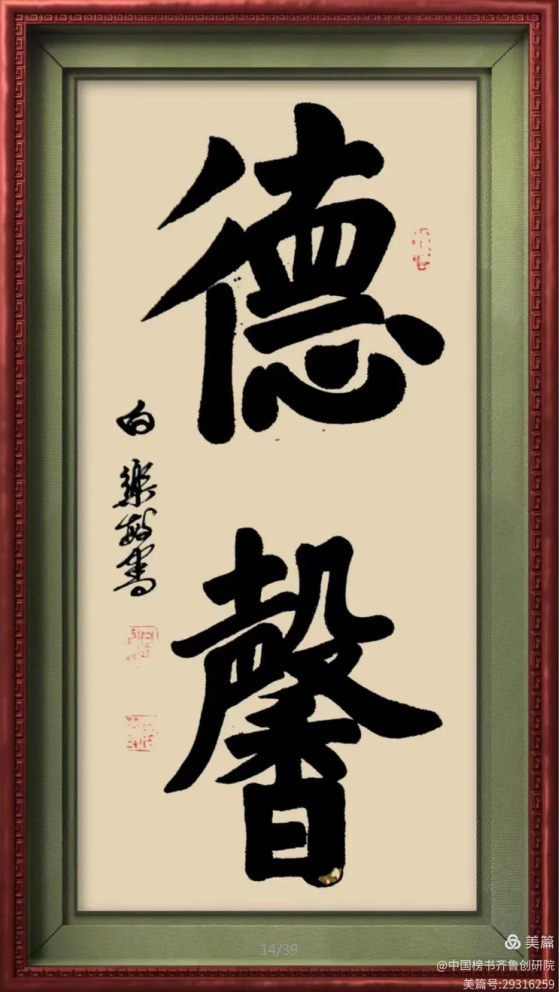 德馨
14/39
美篇
@中国榜书齐鲁创研院
美篇号:29316259